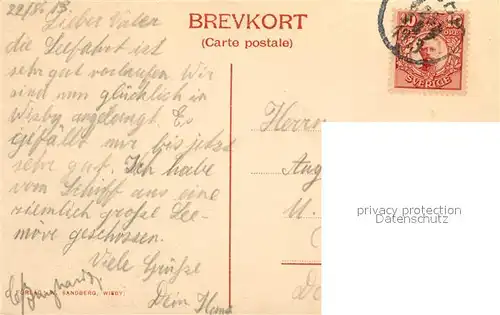 22/86.13.
Lieber Vater
die Seefahrt ist
sehr gut verlaufen. Wir
sind nun glücklich in
Wisby angelangt. Es
gefällt mir bis jetzt
sehr gut. Ich habe
vom Schiff aus eine
ziemlich große See-
möve geschossen.
Viele Grüße
Dein Hans
SANDBERG, WISBY.
BREVKORT
(Carte postale)
SVERIGE
Herrn
Aug
privacy protection
Datenschutz